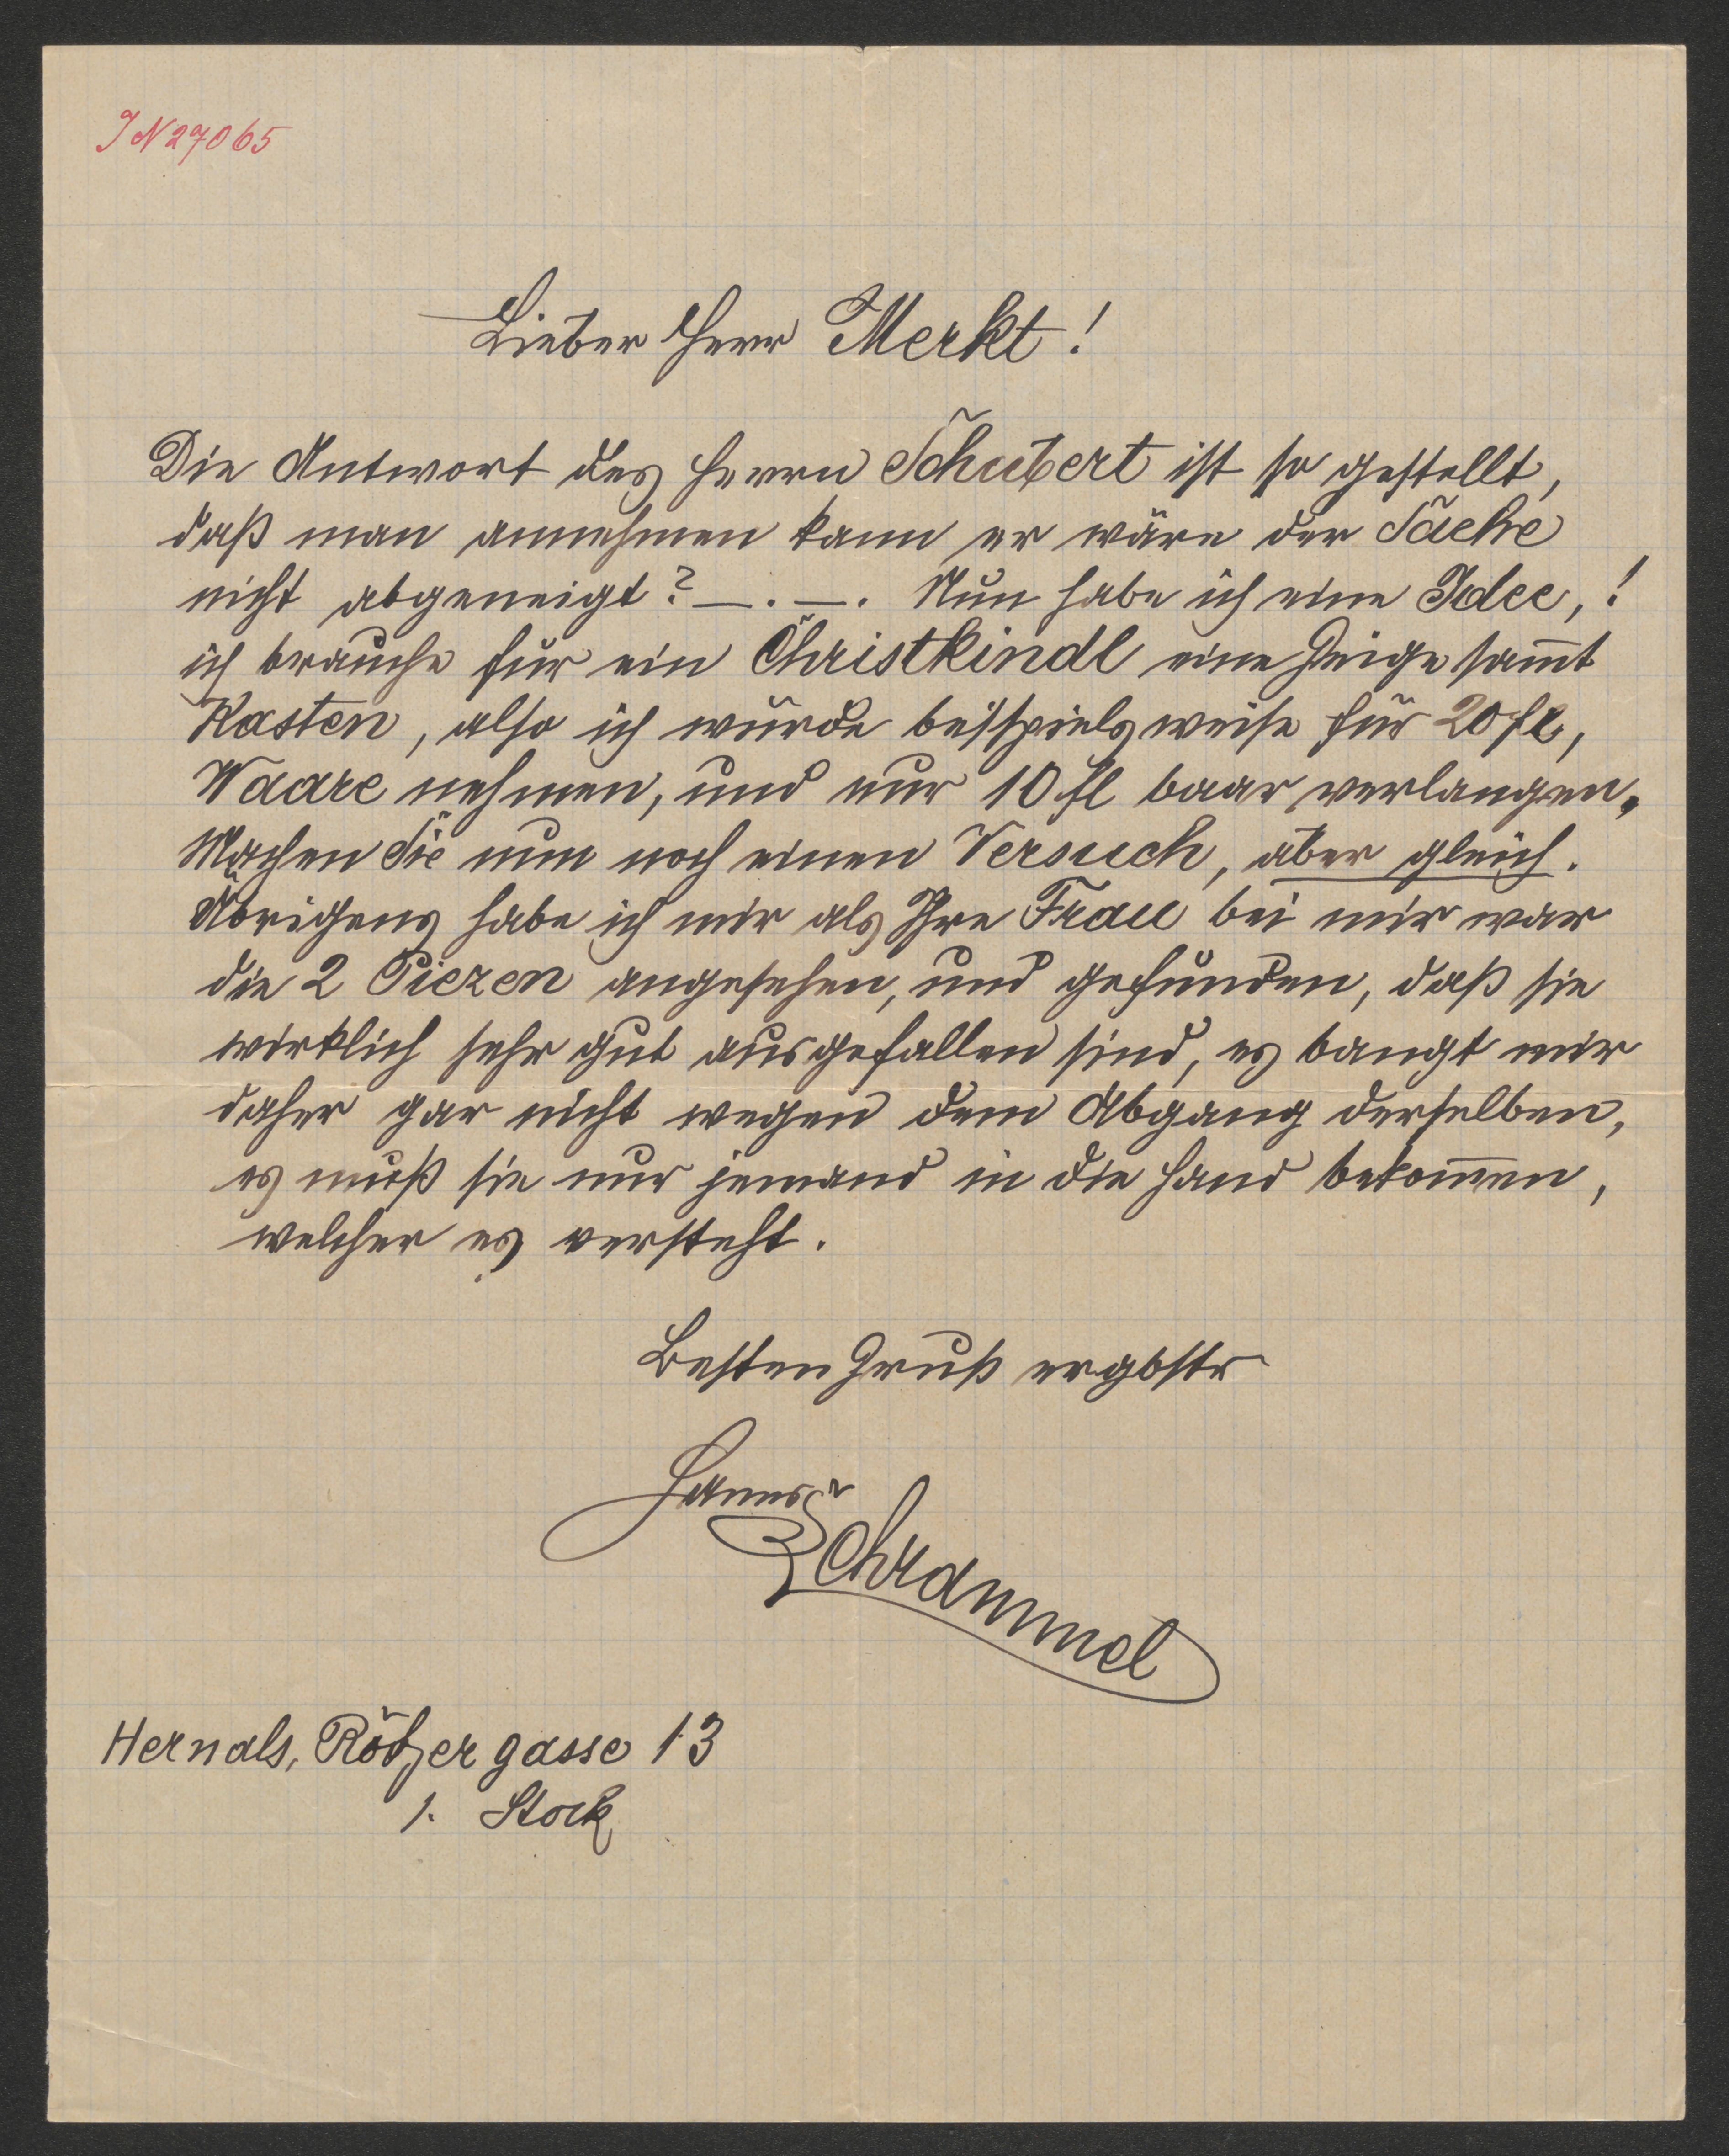 IN 27065
Lieber Herr Merkt!
Die Antwort des Herrn Schubert ist so gestellt,
daß man annehmen kann er wäre der Sache
nicht abgeneigt? —.—. Nun habe ich eine Idee,!
ich brauche für ein Christkindl eine Geige sam̅t
Kasten, also ich würde beispielsweise für 20 fl,
Waare nehmen, und nur 10 fl baar verlangen.
Machen Sie nun noch einen Versuch, aber gleich.
Übrigens habe ich mir als Ihre Frau bei mir war
die 2 Piezen angesehen, und gefunden, daß sie
wirklich sehr gut ausgefallen sind, es bangt mir
daher gar nicht wegen dem Abgang derselben,
es muß sie nur jemand in die Hand bekom̅en,
welcher es versteht.
Besten Gruß ergbstr
Hanns
Schrammel
Hernals, Rötzergasse 13
1. Stock